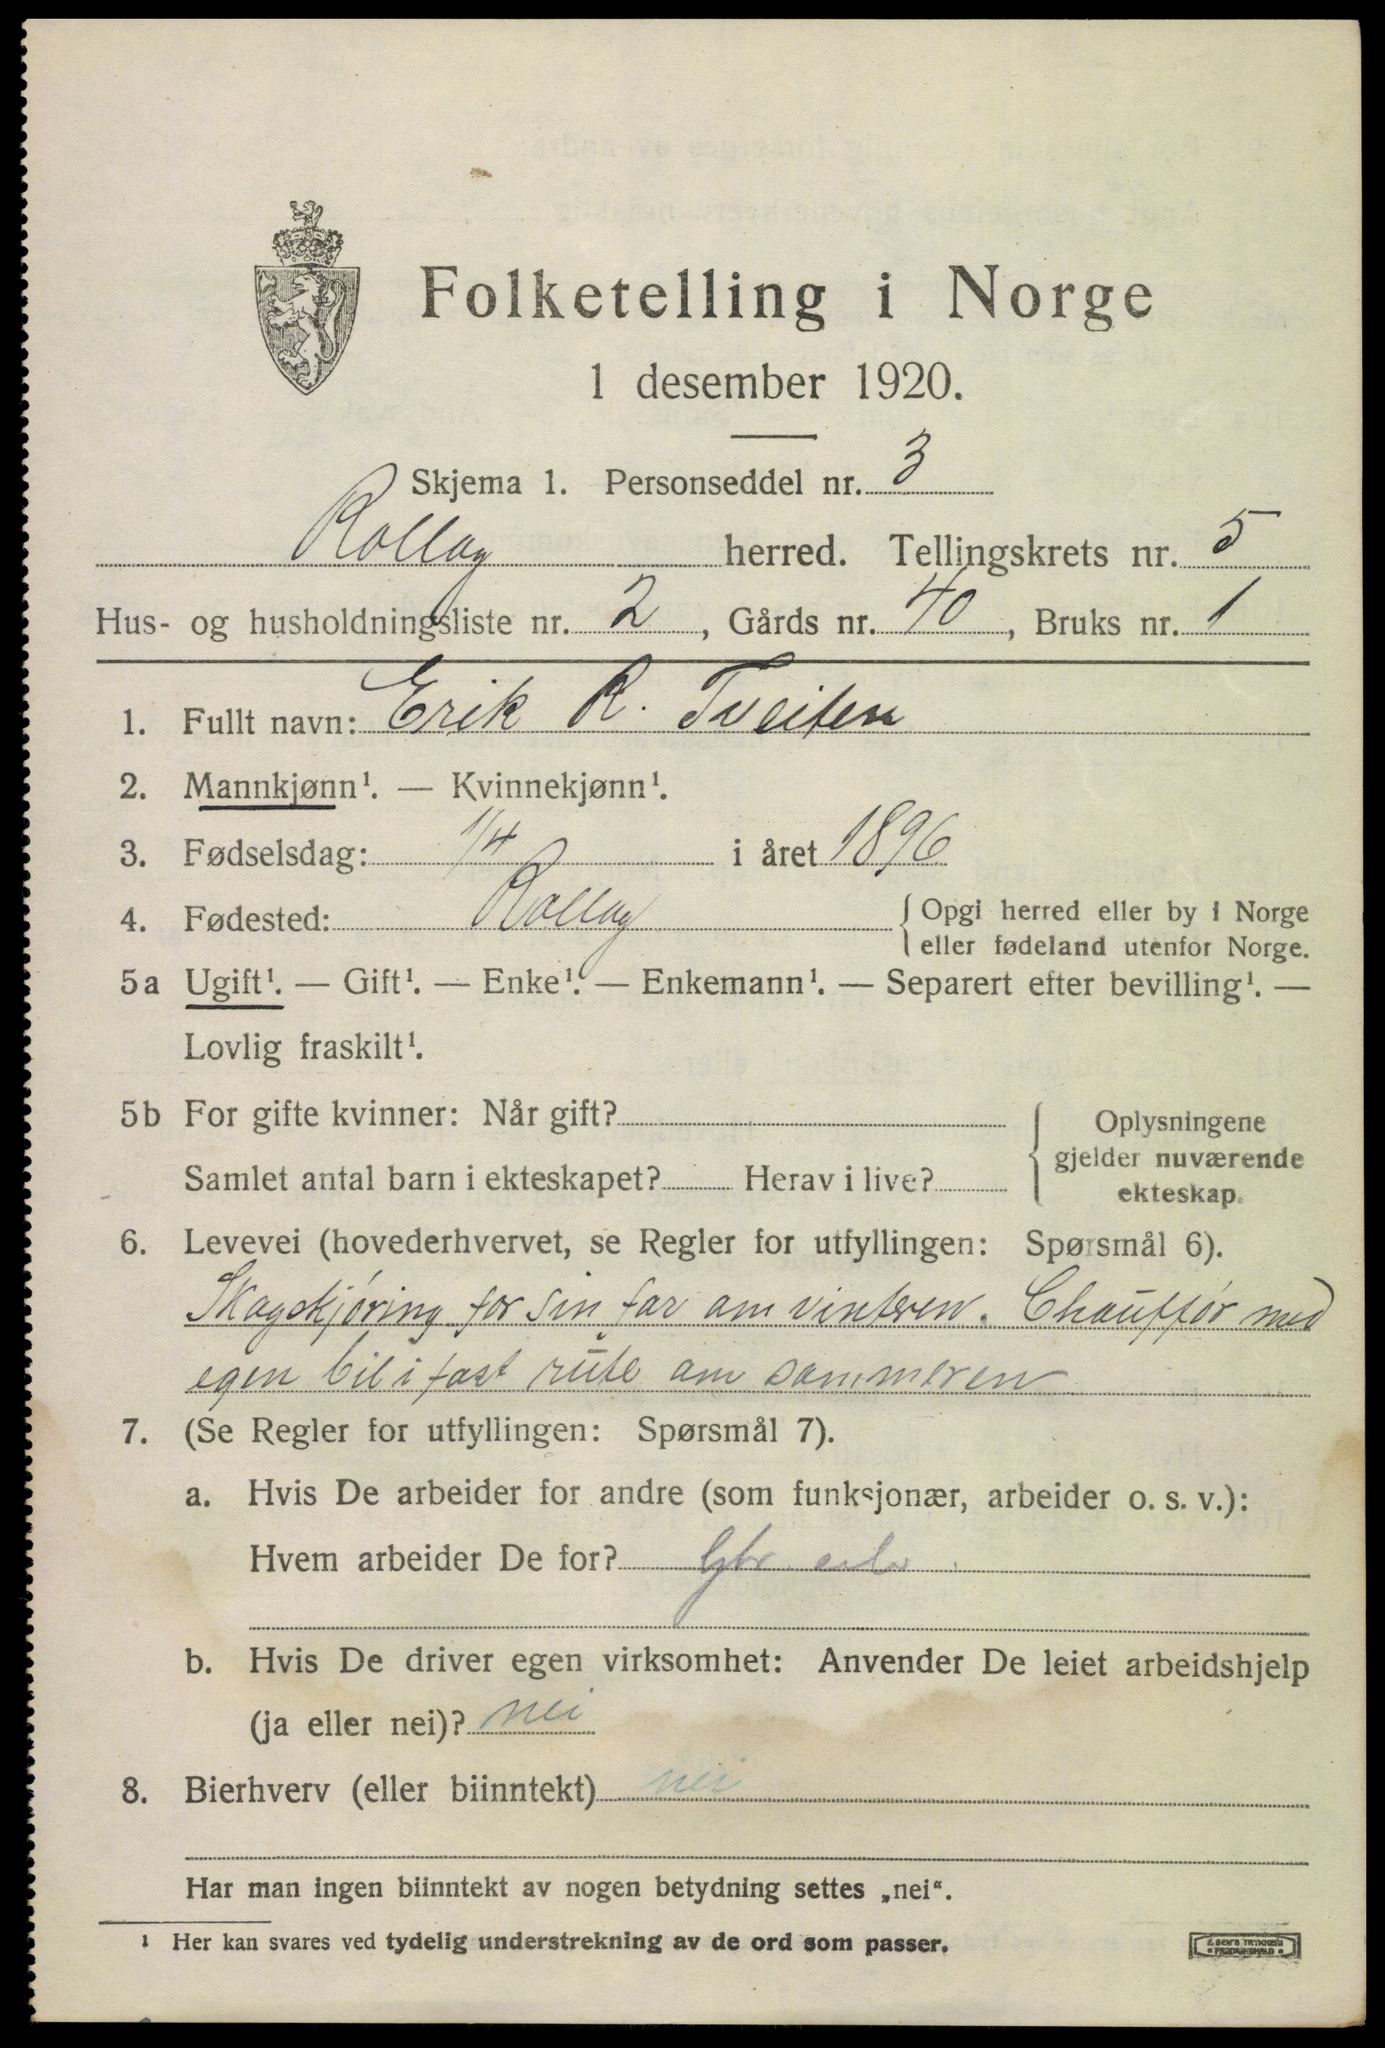 Folketelling i Norge
1 desember 1920.
Skjema 1. Personseddel nr. 3
Rollag herred. Tellingskrets nr. 5
Hus- og husholdningsliste nr. 2, Gårds nr. 40, Bruks nr. 1
1. Fullt navn: Erik R. Tveiten
2. Mannkjønn¹. — Kvinnekjønn¹.
3. Fødselsdag: 1/4 i året 1896
4. Fødested: Rollag {Opgi herred eller by i Norge
eller fødeland utenfor Norge.
5a Ugift¹. — Gift¹. — Enke¹. — Enkemann¹. — Separert efter bevilling¹. —
Lovlig fraskilt¹.
5b For gifte kvinner: Når gift? { Oplysningene
gjelder nuværende
Samlet antal barn i ekteskapet? Herav i live? ekteskap.
6. Levevei (hovederhvervet, se Regler for utfyllingen: Spørsmål 6).
Skogskjøring for sin far om vinteren. Chauffør med
egen bil i fast rute om sommeren
7. (Se Regler for utfyllingen: Spørsmål 7).
a. Hvis De arbeider for andre (som funksjonær, arbeider o. s. v.):
Hvem arbeider De for?
b. Hvis De driver egen virksomhet: Anvender De leiet arbeidshjelp
(ja eller nei)? nei
8. Bierhverv (eller biinntekt) nei
Har man ingen biinntekt av nogen betydning settes „nei“.
¹ Her kan svares ved tydelig understrekning av de ord som passer.